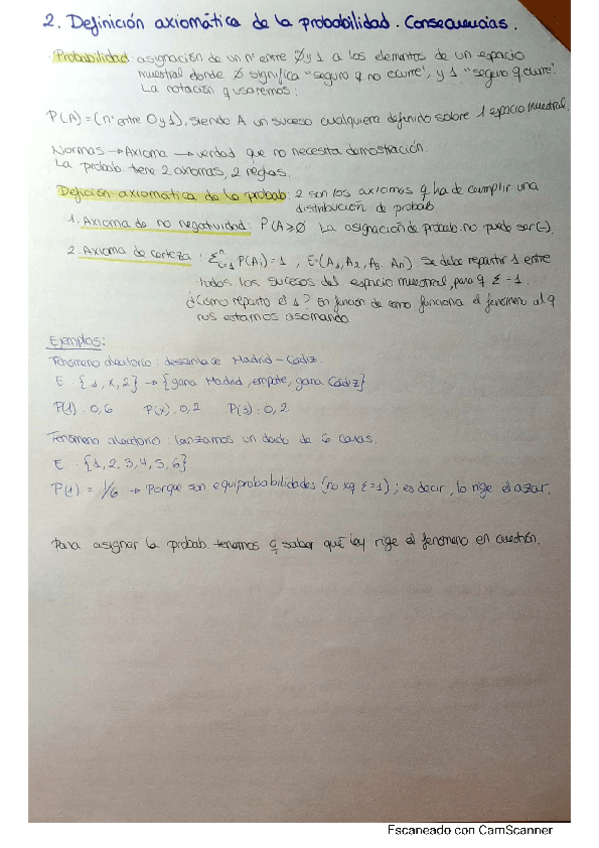 2. Definición axiomática de la probabilidad. Consecuencias.
Probabilidad: asignación de un nº entre 0 y 1 a los elementos de un espacio
muestral donde 0 significa "seguro q no ocurre", y 1 "seguro q ocurre".
La notación q usaremos:
P(A)=(nº entre 0 y 1), siendo A un suceso cualquiera definido sobre 1 espacio muestral.
Normas → Axioma → verdad que no necesita demostración.
La probab. tiene 2 axiomas, 2 reglas.
Defición axiomática de la probab: 2 son los axiomas q ha de cumplir una
distribución de probab.
1. Axioma de no negatividad: P(A≥0 La asignación de probab. no puede ser (-).
2. Axioma de certeza: Σⁿᵢ₌₁ P(Ai)=1, E=(A1, A2, A3.. An) Se debe repartir 1 entre
todos los sucesos del espacio muestral, para q Σ=1.
¿Cómo reparto el 1? En función de cómo funciona el fenómeno al q
nos estamos asomando.
Ejemplos:
Fenómeno aleatorio: desenlace Madrid-Cádiz.
E = {1, X, 2} → {gana Madrid, empate, gana Cádiz}
P(1)=0,6 P(X)=0,2 P(3)=0,2
Fenómeno aleatorio: lanzamos un dado de 6 caras.
E = {1,2,3,4,5,6}
P(1) = 1/6 → Porque son equiprobabilidades (no xq Σ=1); es decir, lo rige el azar.
Para asignar la probab. tenemos q saber qué ley rige el fenómeno en cuestión.
Escaneado con CamScanner